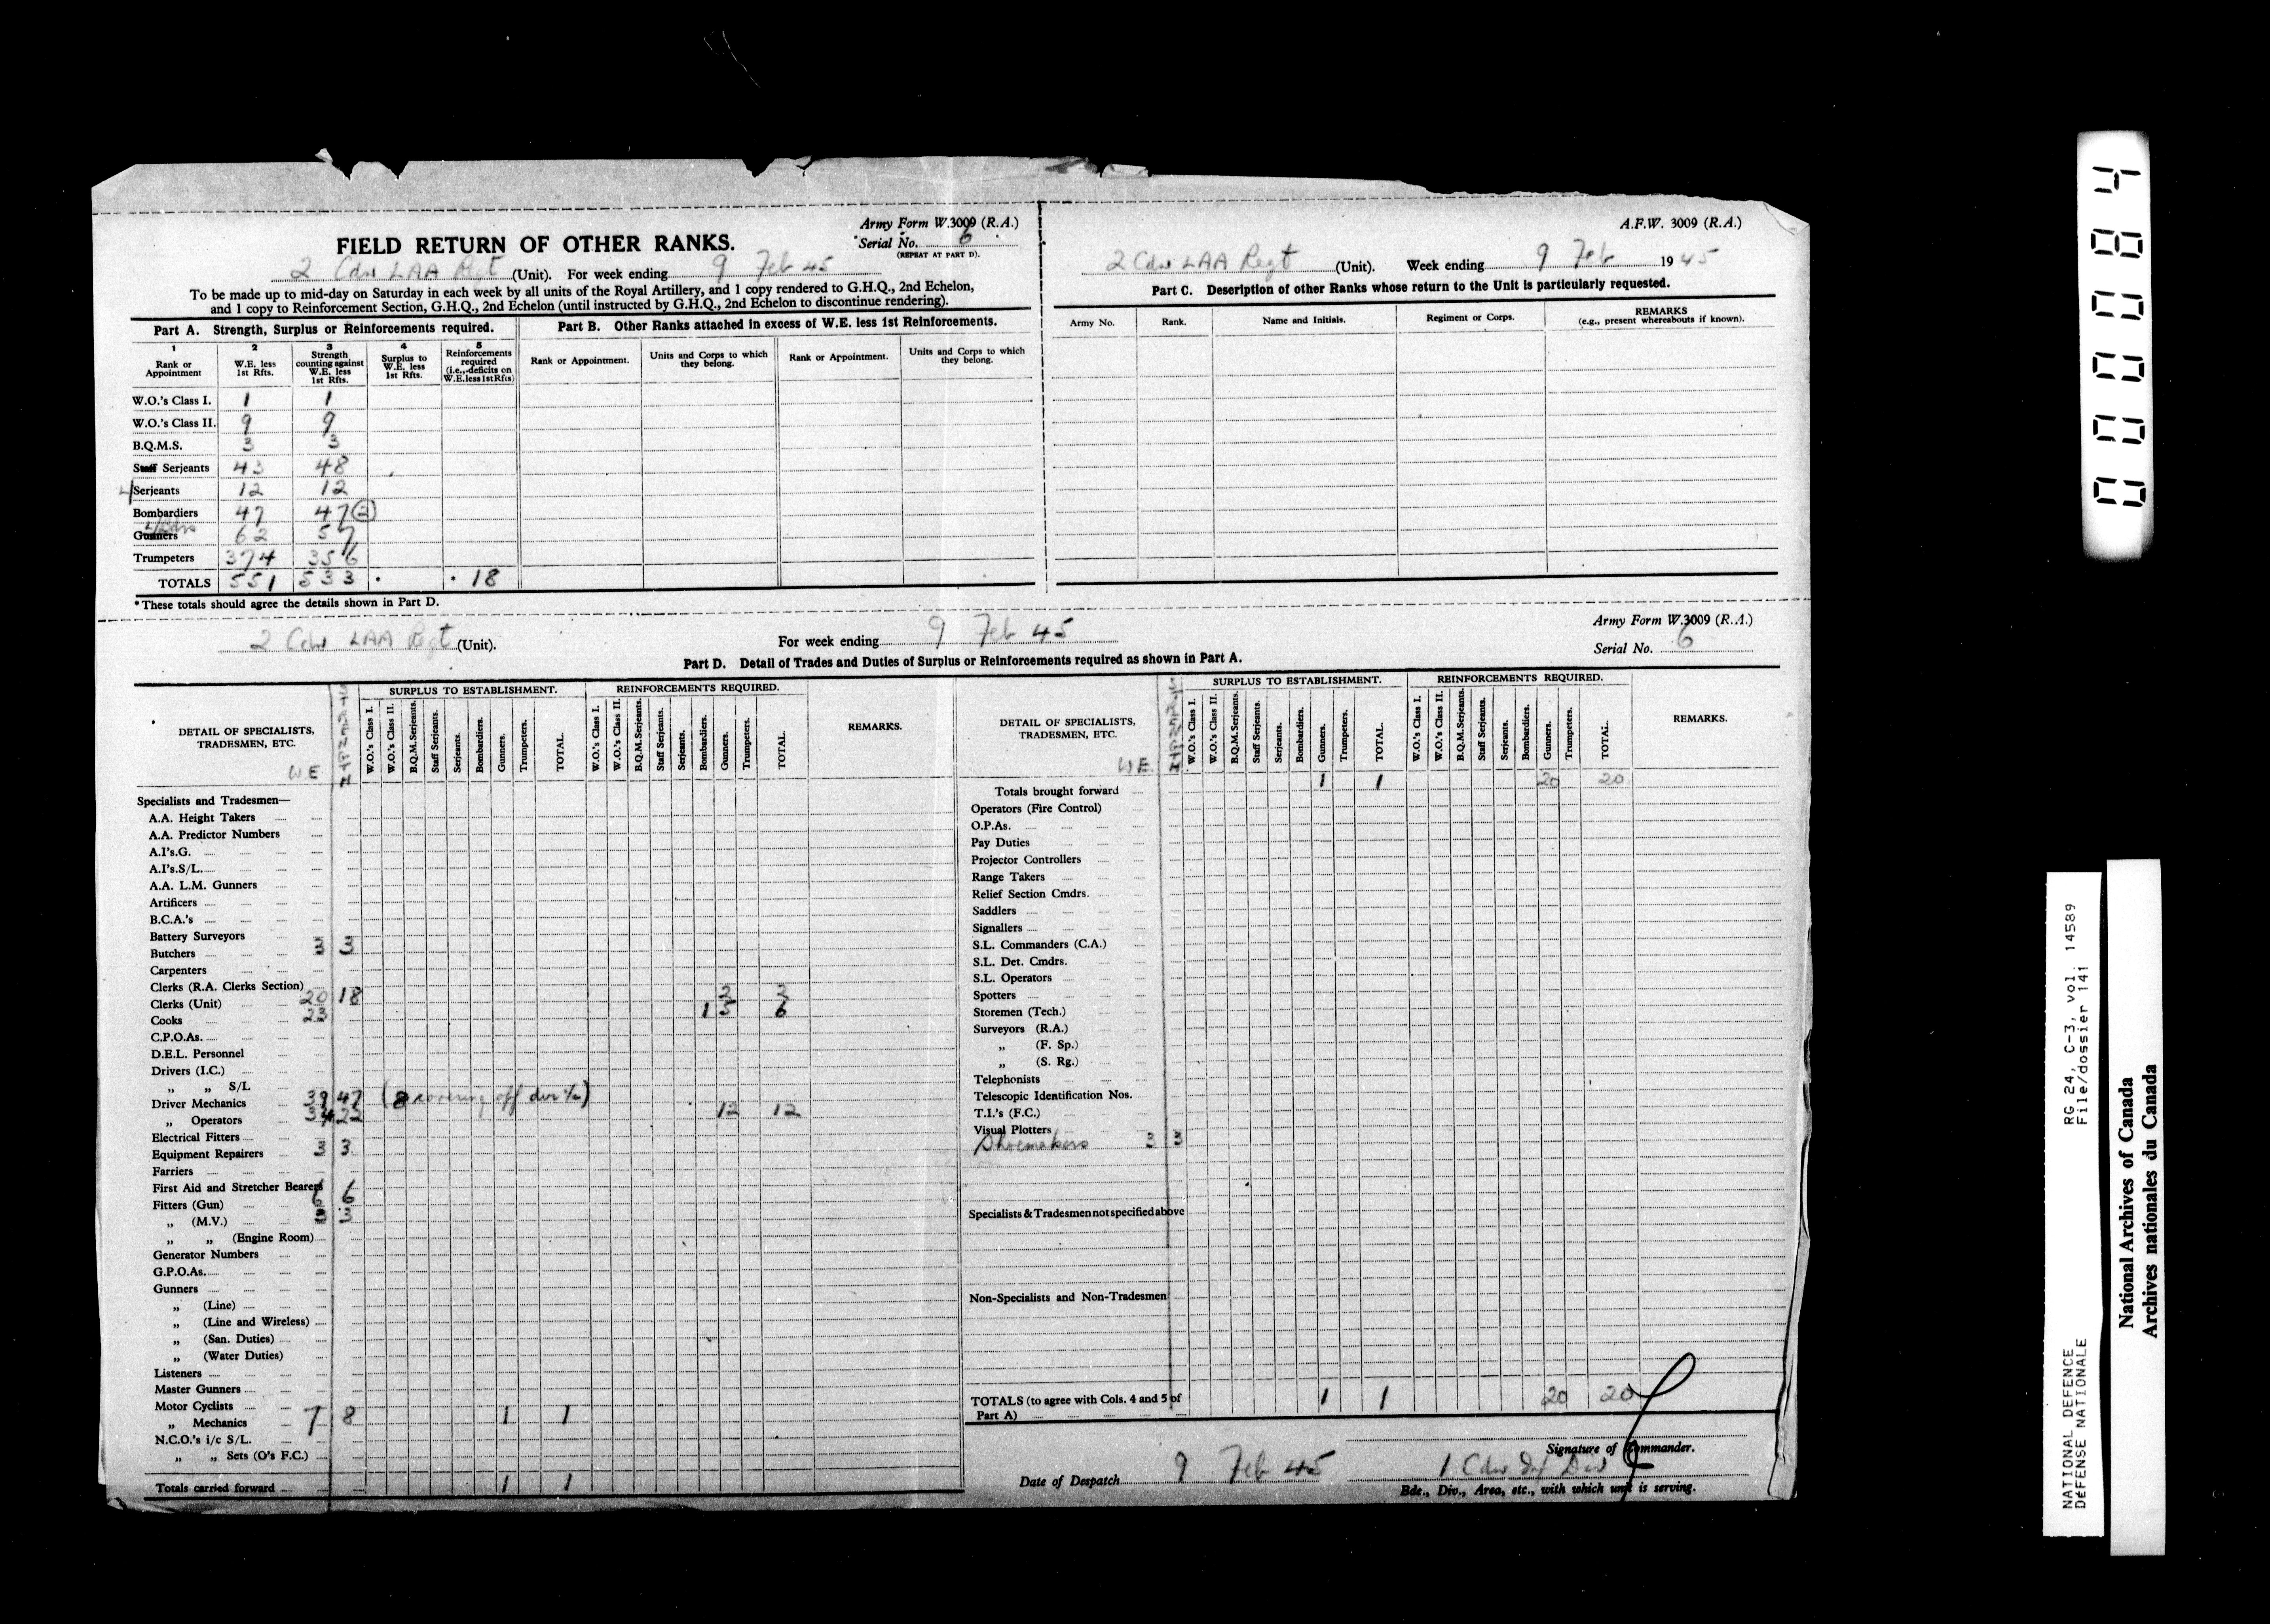 Army Form W.3009 (R.A.)
FIELD RETURN OF OTHER RANKS.
Serial No. 6
(REPEAT AT PART D).
2 Cdn LAA Regt (Unit). For week ending 9 Feb 45
To be made up to mid-day on Saturday in each week by all units of the Royal Artillery, and 1 copy rendered to G.H.Q., 2nd Echelon,
and 1 copy to Reinforcement Section, G.H.Q., 2nd Echelon (until instructed by G.H.Q., 2nd Echelon to discontinue rendering).
Part A. Strength, Surplus or Reinforcements required.
1 2 3 4 5
Rank or Appointment
W.E. less 1st Rfts.
Strength counting against W.E. less 1st Rfts.
Surplus to W.E. less 1st Rfts.
Reinforcements required (i.e., deficits on W.E. less 1st Rfts)
W.O.'s Class I. 1 1
W.O.'s Class II. 9 9
B.Q.M.S. 3 3
Staff Serjeants 43 48
L/Serjeants 12 12
Bombardiers 47 47
Gunners 62 57
Trumpeters 374 356
TOTALS 551 533 * * 18
*These totals should agree the details shown in Part D.
Part B. Other Ranks attached in excess of W.E. less 1st Reinforcements.
Rank or Appointment. Units and Corps to which they belong. Rank or Appointment. Units and Corps to which they belong.
A.F.W. 3009 (R.A.)
2 Cdn LAA Regt (Unit). Week ending 9 Feb 1945
Part C. Description of other Ranks whose return to the Unit is particularly requested.
Army No. Rank. Name and Initials. Regiment or Corps. REMARKS
(e.g., present whereabouts if known).
Army Form W.3009 (R.A.)
2 Cdn LAA Regt (Unit). For week ending 9 Feb 45
Serial No. 6
Part D. Detail of Trades and Duties of Surplus or Reinforcements required as shown in Part A.
DETAIL OF SPECIALISTS, TRADESMEN, ETC.
WE
SURPLUS TO ESTABLISHMENT. REINFORCEMENTS REQUIRED.
W.O.'s Class I. W.O.'s Class II. B.Q.M.Serjeants. Staff Serjeants. Serjeants. Bombardiers. Gunners. Trumpeters. TOTAL.
W.O.'s Class I. W.O.'s Class II. B.Q.M.Serjeants. Staff Serjeants. Serjeants. Bombardiers. Gunners. Trumpeters. TOTAL.
REMARKS.
Specialists and Tradesmen—
A.A. Height Takers
A.A. Predictor Numbers
A.I's.G.
A.I's.S/L.
A.A. L.M. Gunners
Artificers
B.C.A.'s
Battery Surveyors
Butchers 3 3
Carpenters
Clerks (R.A. Clerks Section)
Clerks (Unit) 20 18 2 2
Cooks 23 1 5 6
C.P.O.As.
D.E.L. Personnel
Drivers (I.C.)
„ „ S/L
Driver Mechanics 39 47 (8 covering off dvr i/c)
„ Operators 34 22 12 12
Electrical Fitters
Equipment Repairers 3 3
Farriers
First Aid and Stretcher Bearers
Fitters (Gun) 6 6
„ (M.V.) 3 3
„ „ (Engine Room)
Generator Numbers
G.P.O.As.
Gunners
„ (Line)
„ (Line and Wireless)
„ (San. Duties)
„ (Water Duties)
Listeners
Master Gunners
Motor Cyclists
„ Mechanics 7 8 1 1
N.C.O.'s i/c S/L.
„ „ Sets (O's F.C.)
Totals carried forward 1 1
DETAIL OF SPECIALISTS, TRADESMEN, ETC.
WE
SURPLUS TO ESTABLISHMENT. REINFORCEMENTS REQUIRED.
W.O.'s Class I. W.O.'s Class II. B.Q.M.Serjeants. Staff Serjeants. Serjeants. Bombardiers. Gunners. Trumpeters. TOTAL.
W.O.'s Class I. W.O.'s Class II. B.Q.M.Serjeants. Staff Serjeants. Serjeants. Bombardiers. Gunners. Trumpeters. TOTAL.
REMARKS.
Totals brought forward 1 1 20 20
Operators (Fire Control)
O.P.As.
Pay Duties
Projector Controllers
Range Takers
Relief Section Cmdrs.
Saddlers
Signallers
S.L. Commanders (C.A.)
S.L. Det. Cmdrs.
S.L. Operators
Spotters
Storemen (Tech.)
Surveyors (R.A.)
„ (F. Sp.)
„ (S. Rg.)
Telephonists
Telescopic Identification Nos.
T.I.'s (F.C.)
Visual Plotters
Shoemakers 3 3
Specialists & Tradesmen not specified above
Non-Specialists and Non-Tradesmen
TOTALS (to agree with Cols. 4 and 5 of Part A) 1 1 20 20
Signature of Commander.
Date of Despatch 9 Feb 45 1 Cdn Inf Div
Bde., Div., Area, etc., with which unit is serving.
000084
RG 24, C-3, vol. 14589
File/dossier 141
NATIONAL DEFENCE
DÉFENSE NATIONALE
National Archives of Canada
Archives nationales du Canada